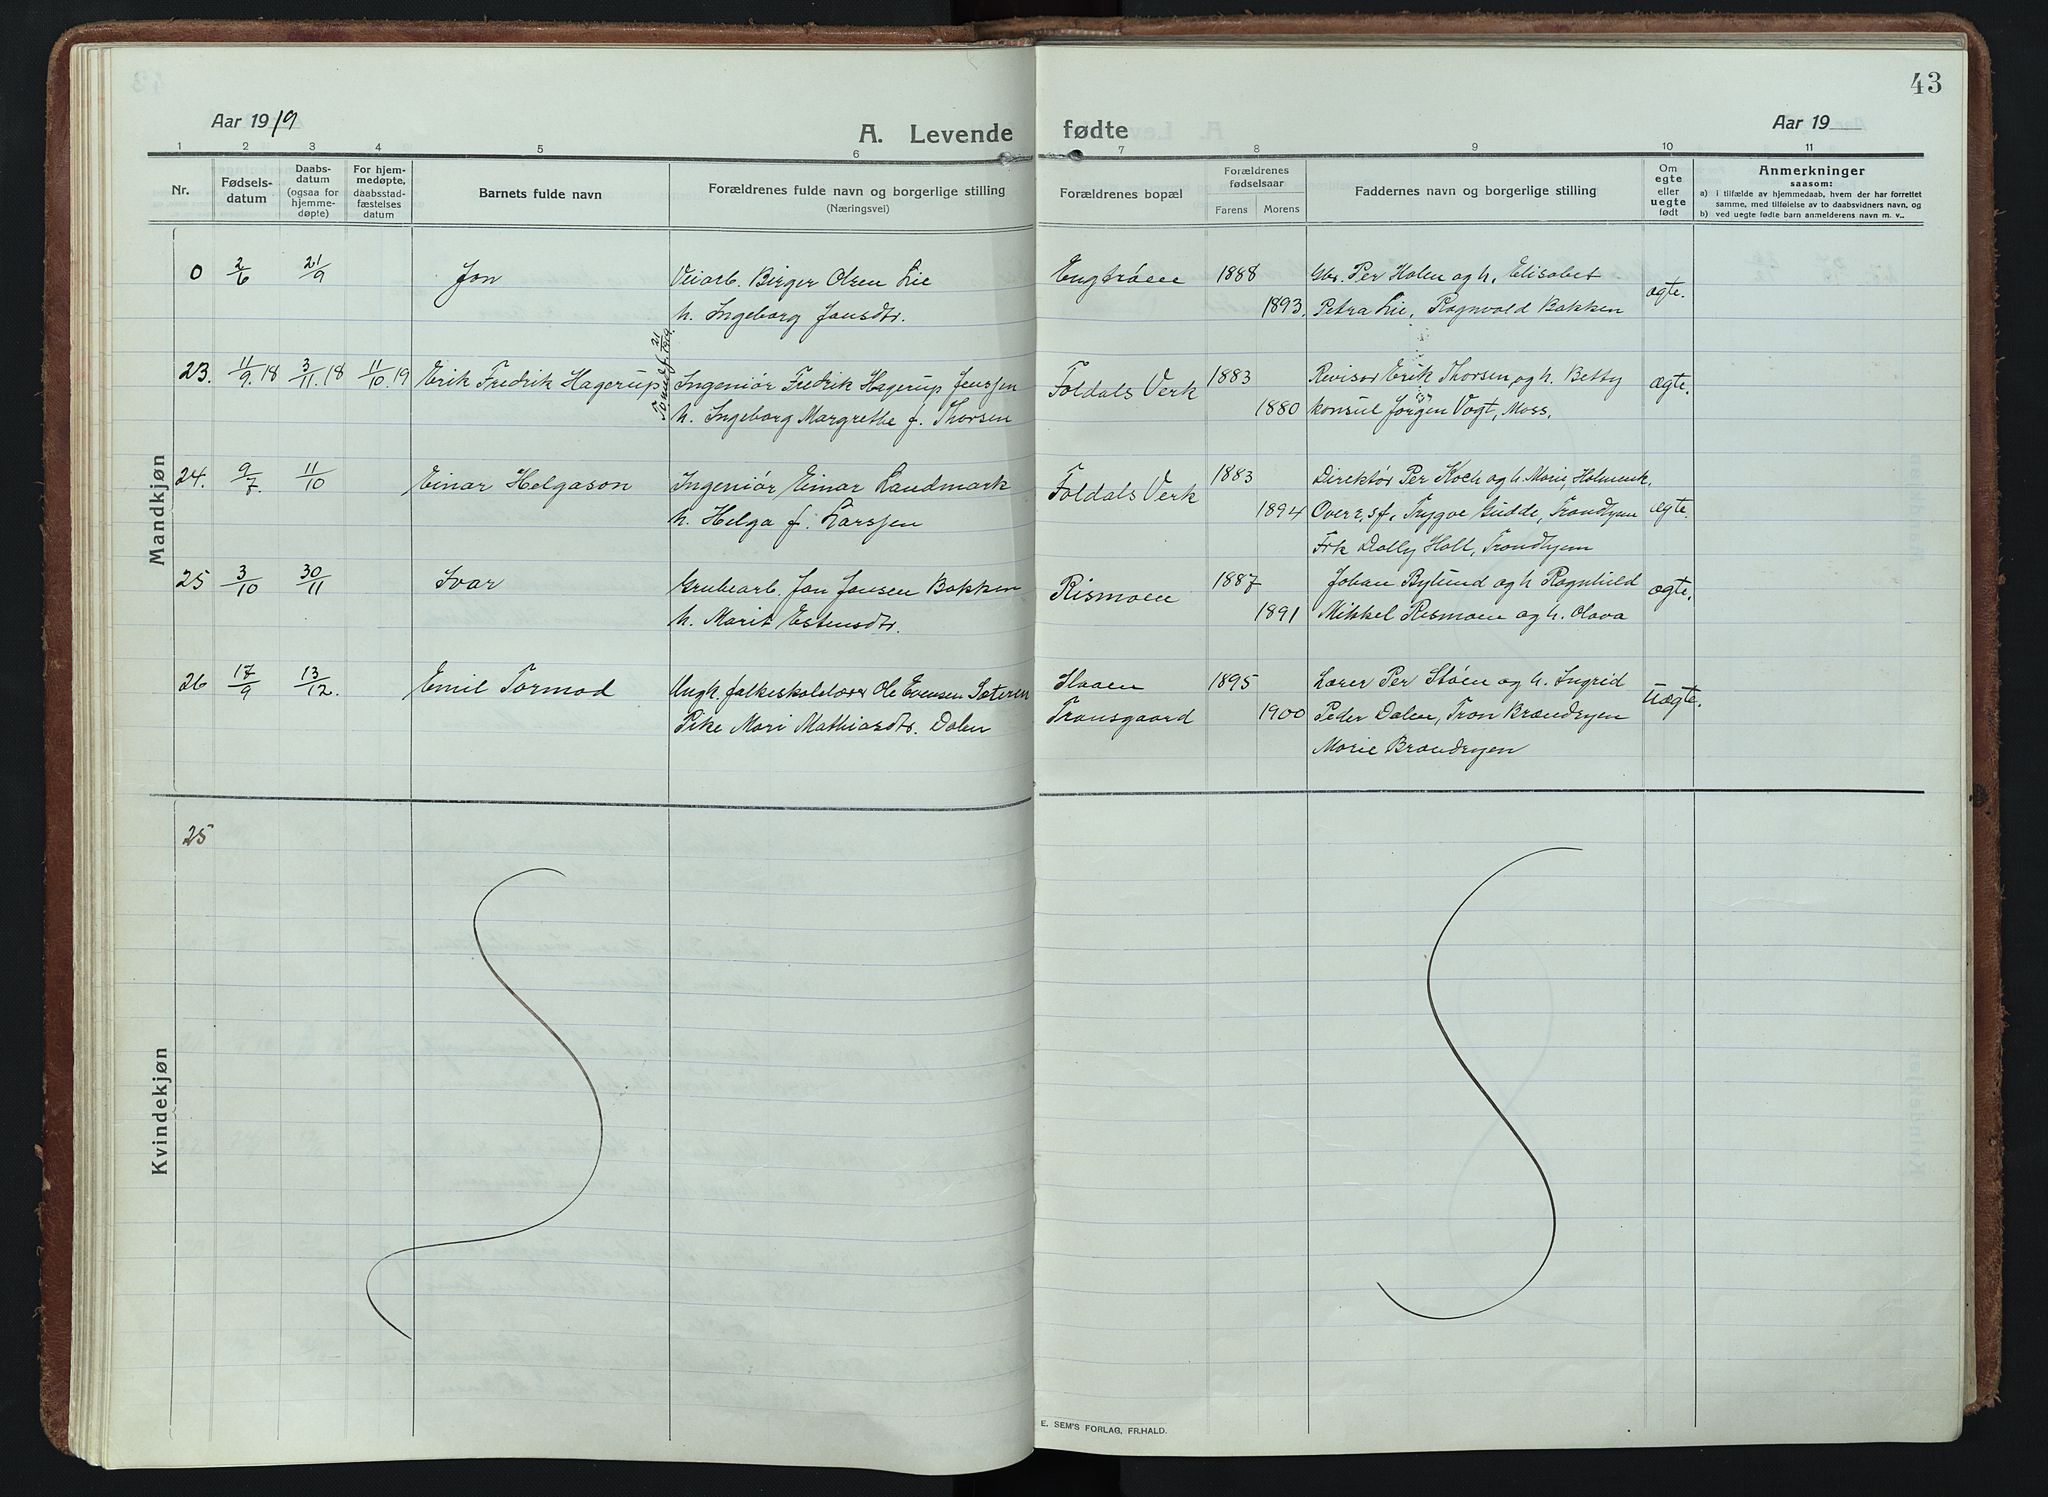 43
Aar 1919
A. Levende fødte
Aar 19
1 2 3 4 5 6 7 8 9 10 11
Nr.
Fødsels-
datum
Daabs-
datum
(ogsaa for
hjemme-
døpte)
For hjem-
medøpte,
daabsstad-
fæstelses
datum
Barnets fulde navn
Forældrenes fulde navn og borgerlige stilling
(Næringsvei)
Forældrenes bopæl
Forældrenes
fødselsaar
Farens Morens
Faddernes navn og borgerlige stilling
Om
egte
eller
uegte
født
Anmerkninger
saasom:
a) i tilfælde av hjemmedaab, hvem der har forrettet
samme, med tilføielse av to daabsvidners navn, og
b) ved uegte fødte barn anmelderens navn m. v..
Mandkjøn
0 2/6 21/9 Jon Veiarb. Birger Olsen Lie Engtrøen 1888 Gbr. Per Holen og h. Elisabet ægte.
h. Ingeborg Jonsdtr. 1893. Petra Lie, Ragnvald Bakken
23. 11/9.18 3/11.18 11/10 19 Erik Fredrik Hagerup Ingeniør Fredrik Hagerup Jenssen Foldals Verk 1883 Revisor Erik Thorsen og h. Betty ægte.
h. Ingeborg Margrethe f. Thorsen 1880 konsul Jørgen Vogt, Moss.
24. 9/7. 11/10 Einar Helgason Ingeniør Einar Landmark Foldals Verk 1883 Direktør Per Koch og h. Marie, Holmenk.
h. Helga f. Larssen 1894 Trygve Gudde, Trondhjem ægte.
Frk Dolly Holt, Trondhjem
25 3/10 30/11 Ivar Grubearb. Jon Jonsen Bakken Rismoen 1887 Johan Bylund og h Ragnhild ægte.
h. Marit Estensdtr. 1891 Mikkel Rismoen og h. Olava
26 17/9 13/12. Emil Tormod Ungk. folkeskolelærer Ole Evensen Sæteren 1895 Lærer Per Støen og h. Ingrid uægte.
Pike Mari Mathiasdtr. Dalen Tronsgaard 1900 Peder Dalen, Tron Brændryen
Marie Brændryen
Kvindekjøn
25
E. SEM'S FORLAG, FR.HALD.